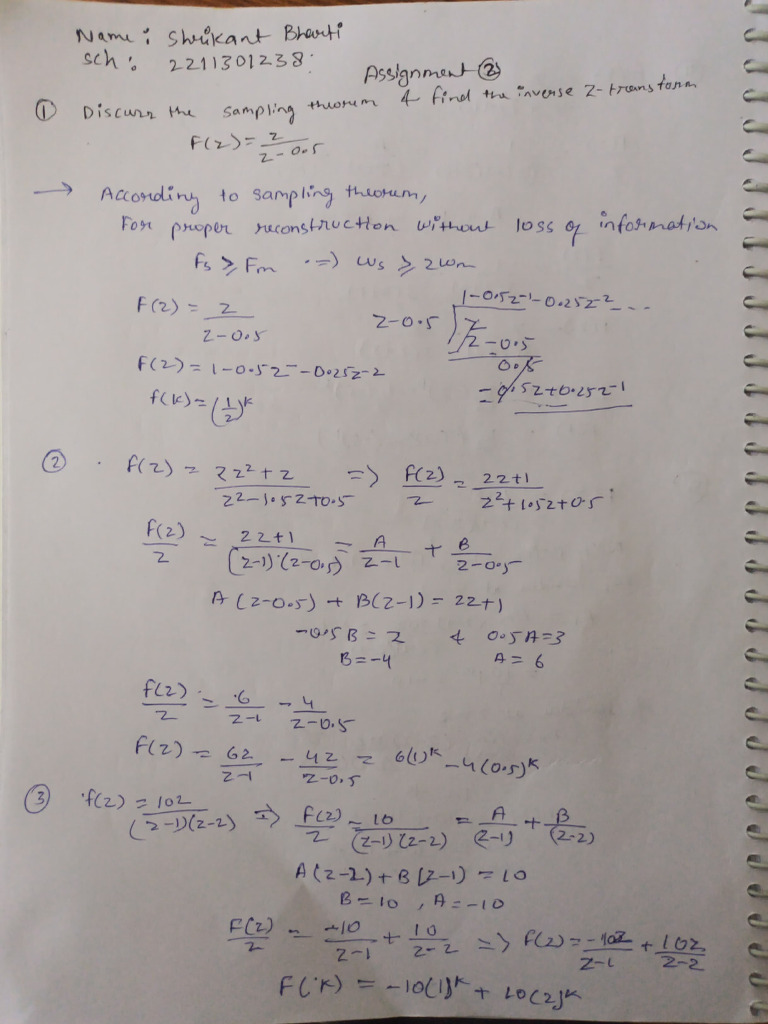 Name : Shrikant Bharti
Sch : 2211301238.
Assignment ②
① Discuss the sampling theorem & find the inverse Z-transform
F(z) = z / (z-0.5)
→ According to sampling theorem,
For proper reconstruction without loss of information
Fs ≥ Fm ⇒ ws ≥ 2wm
F(z) = z / (z-0.5)
z-0.5 ) z
1-0.5z-1-0.25z-2 ...
z-0.5
0.5
= 0.5z+0.25z-1
F(z) = 1-0.5z - -0.25z-2
f(k) = (1/2)^k
② F(z) = 2z²+z / z²-1.5z+0.5 ⇒ F(z)/z = 2z+1 / z²+1.5z+0.5
F(z)/z = 2z+1 / (z-1)(z-0.5) = A/z-1 + B/z-0.5
A(z-0.5) + B(z-1) = 2z+1
-0.5B = 2 & 0.5A=3
B=-4 A=6
F(z)/z = 6/z-1 - 4/z-0.5
F(z) = 6z/z-1 - 4z/z-0.5 = 6(1)^k - 4(0.5)^k
③ f(z) = 10z / (z-1)(z-2) ⇒ F(z)/z = 10 / (z-1)(z-2) = A/(z-1) + B/(z-2)
A(z-2)+B(z-1) = 10
B=10, A=-10
F(z)/z = -10/z-1 + 10/z-2 ⇒ f(z) = -10z/z-1 + 10z/z-2
F(k) = -10(1)^k + 10(2)^k